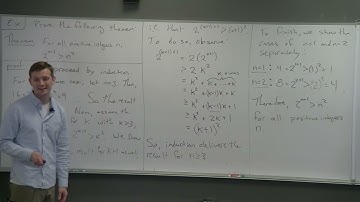 Ex Prove the following theorem
Theorem For all positive integers n,
2^(n+1) > n^2
proof
proceed by induction
n=3. Then,
So the result
Now, assume the
k with k≥3,
> k^2. We
result for k+1
i.e. that 2^((k+1)+1) > (k+1)^2
To do so, observe
2^((k+1)+1) = 2(2^(k+1))
> 2k^2
= k^2 + k^2
= k^2 + k+k+...+k
= k^2 + (k-1)k + k
≥ k^2 + (k-1)k + 1
≥ k^2 + 2k + 1
= (k+1)^2
So, induction delivers the
result for n≥3.
To finish, we show the
cases of n=1 and n=2
separately.
n=1: 4 = 2^(1+1) > (1)^2 = 1
n=2: 8 = 2^(2+1) > (2)^2 = 4
Therefore, 2^(n+1) > n^2
for all positive integers
n